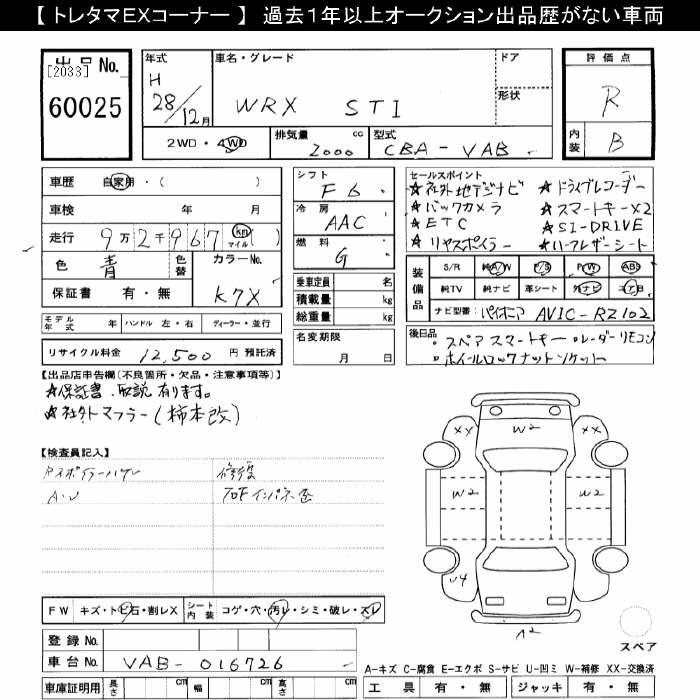 【 トレタマEXコーナー 】 過去1年以上オークション出品歴がない車両
出品 No.
[2033]
60025
年式
H
28/12月
車名・グレード
WRX STI
ドア
形状
2WD・4WD
排気量 cc
2000
型式
CBA-VAB
評価点
R
内装
B
車歴 自家用・( )
車検 年 月
走行 9万2千967 km マイル ( )
色 青
色替
カラーNo.
K7X
保証書 有・無
モデル年式 年
ハンドル 左・右
ディーラー・並行
リサイクル料金 12,500 円 預託済
シフト
F6
冷房
AAC
燃料
G
乗車定員 名
積載量 kg
総重量 kg
名変期限
月 日
セールスポイント
★社外地デジナビ ★ドライブレコーダー
★バックカメラ ★スマートキーX2
★ETC ★SI-DRIVE
★リヤスポイラー ★ハーフレザーシート
装備品
S/R 純A/W P/S P/W ABS
純TV 純ナビ 革シート 外ナビ エアB
ナビ型番: パイオニア AVIC-RZ102
後日品
スペアスマートキー レーダーリモコン
ホイールロックナットソケット
【出品店申告欄(不良箇所・欠品・注意事項等)】
★保証書、取説 有ります。
★社外マフラー(柿本改)
【検査員記入】
Rスポイラーハゲ
修復
A・U
フロアインパネ歪
FW キズ・トビ石・割レX
シート内装 コゲ・穴・汚レ・シミ・破レ・スレ
登録 No.
車台 No. VAB-016726
車庫証明用 長さ cm 幅 cm 高さ cm
XX
W2
XX
W2
W2
U4
A2
スペア
A-キズ C-腐食 E-エクボ S-サビ U-凹ミ W-補修 XX-交換済
工具 有・無 ジャッキ 有・無